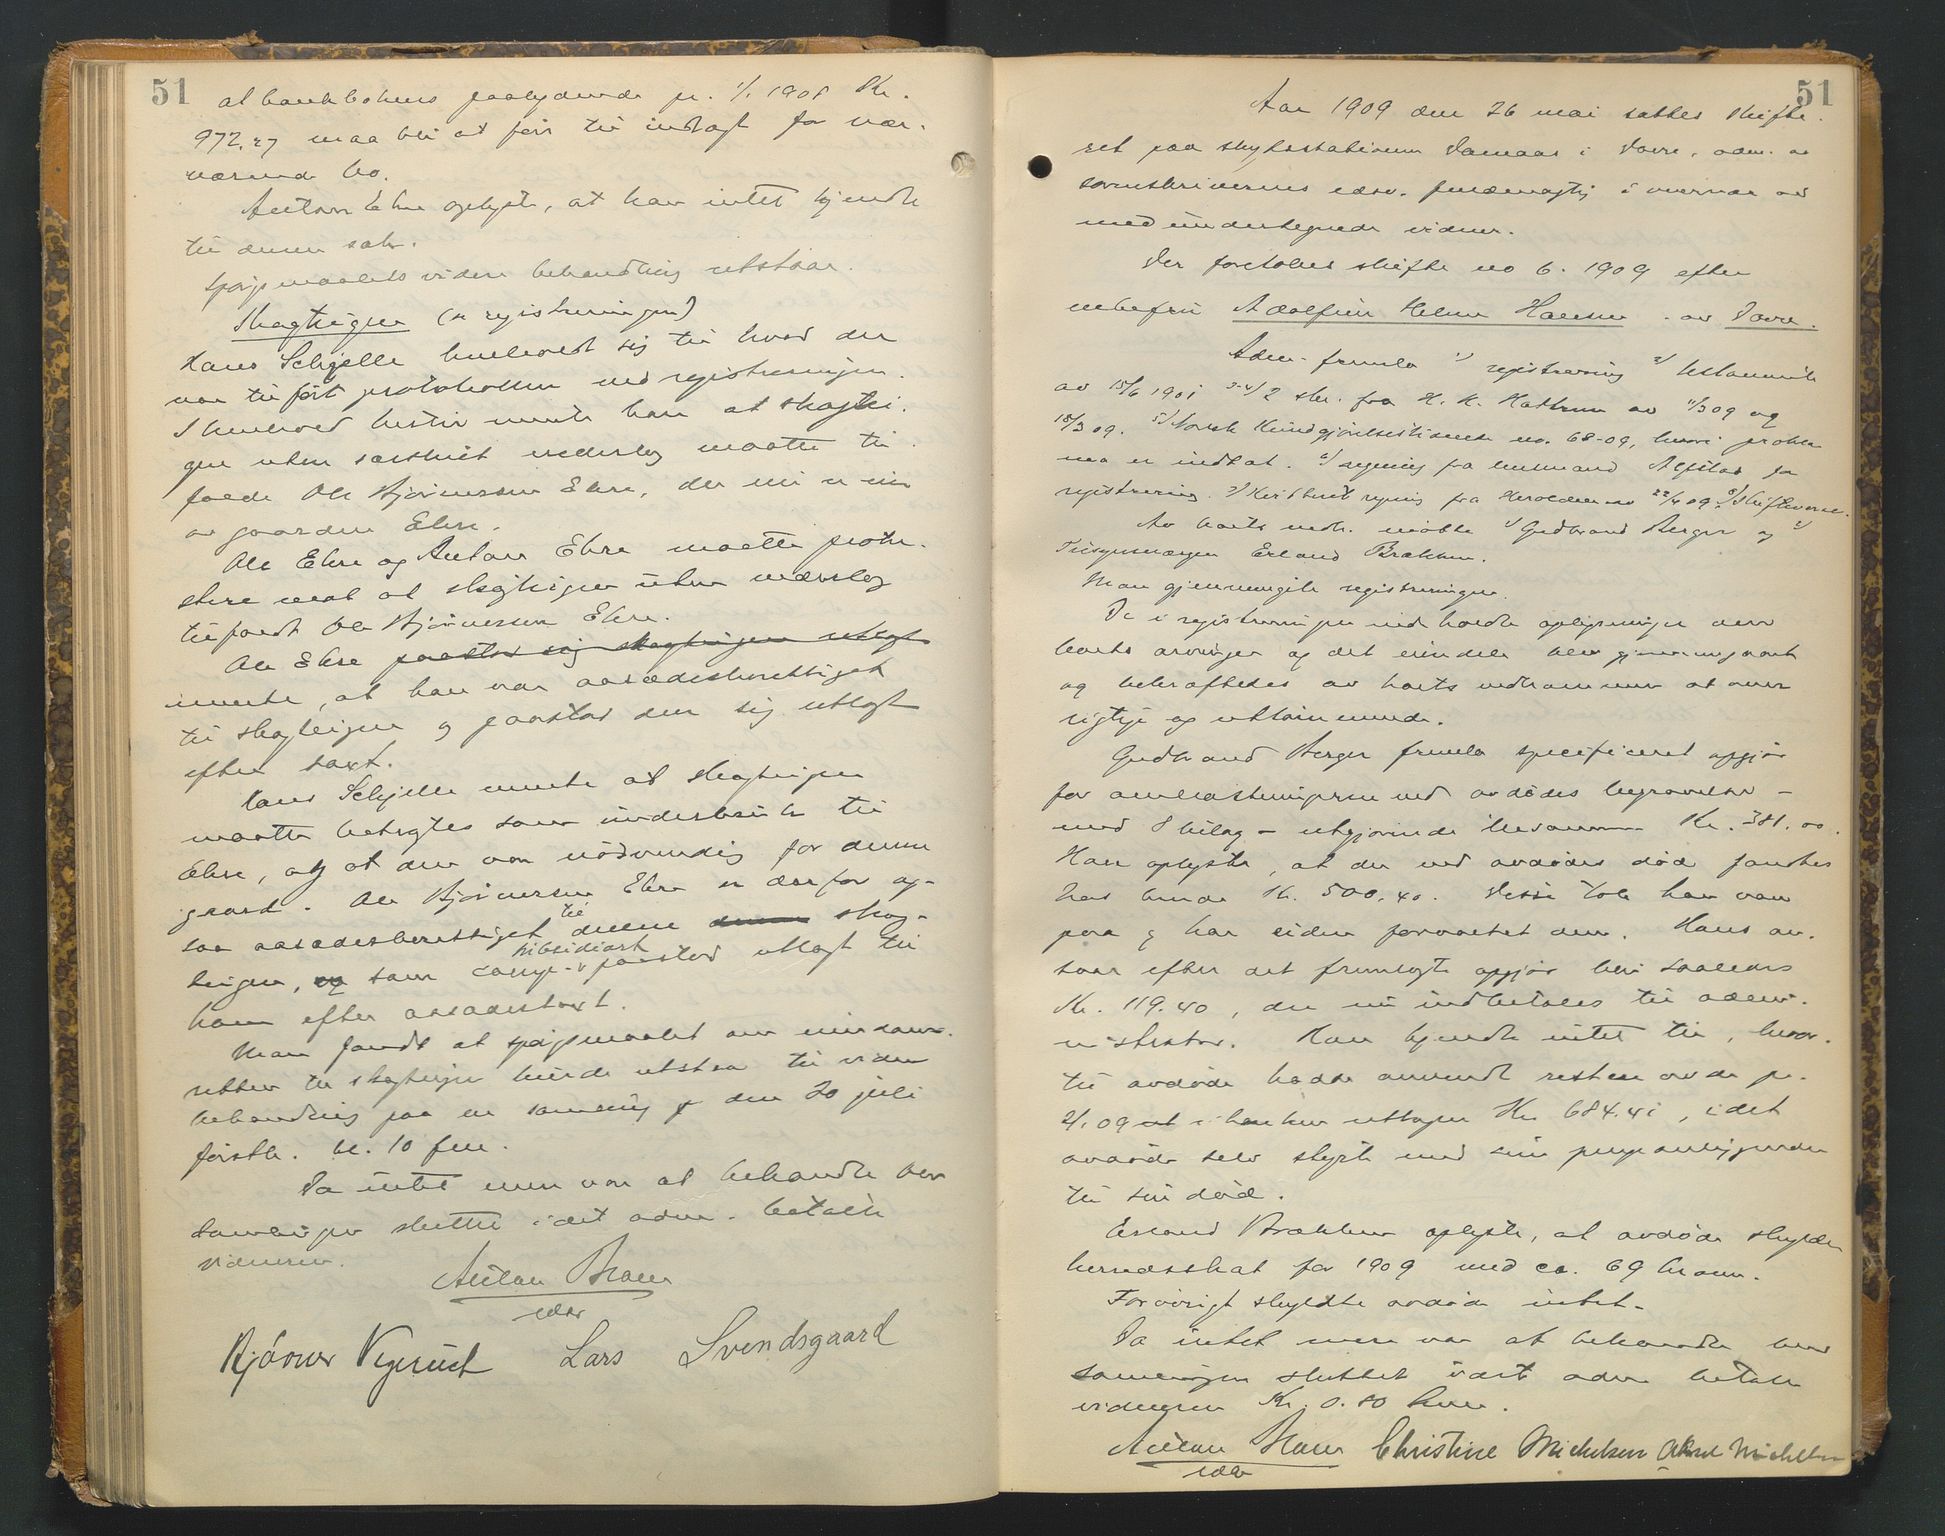 51
at bankbokens paalydende pr. 1/1 1908 Kr.
972.27 maa bli at före til indtægt for nær-
værende bo.
Anton Ekre oplyste, at han intet kjendte
til denne sak.
Spörsmaalets videre behandling utstaar.
Skogteigen (se registreringen)
Hans Schjelle henholdt sig til hvad der
var tilfört protokollen ved registreringen.
I henhold hertil mente han at skogtei-
gen uten særskilt vederlag maatte til-
falde Ole Björnersen Ekre, der nu er eier
av gaarden Ekre.
Ole Ekre og Anton Ekre maatte prote-
stere mot at skogteigen uten vederlag
tilfaldt Ole Björnersen Ekre.
Ole Ekre paastod sig skogteigen utlagt
mente, at han var aasædesberettiget
til skogteigen og paastod den sig utlagt
efter taxt.
Hans Schjelle mente at skogteigen
maatte betragtes som underbruk til
Ekre, og at den var nödvendig for denne
gaard. Ole Björnersen Ekre er derfor og-
saa aasædesberettiget til denne skog-
teigen, og som subsidiært paastod utlagt til
ham efter aasædestaxt.
Man fandt at spörsmaalet om eiendoms-
retten til skogteigen burde utstaa til videre
behandling paa en samling den 20 juli
förstk. kl. 10 fm.
Da intet mere var at behandle blev
samlingen sluttet idet adm. betalte
vidnerne.
Anton Braen
edsv
Björner Vigerust Lars Svendsgaard
51
Aar 1909 den 26 mai sattes skifte-
ret paa skydsstationen Domaas i Dovre, adm. av
sorenskriverens edsv. fuldmægtig i overvær av
medundertegnede vidner.
Der foretokes skifte no 6. 1909 efter
ubefri Adolfine Helene Hansen av Dovre.
Adm. fremla 1) registrering 2) testamente
av 15/6 1901 3-4) 2 skr. fra H. K. Hattrem av 11/3 09 og
18/3 09. 5) Norsk Kundgjörelsestidende no. 68-09, hvori proklama
er indtat. 6) regning fra lensmand for
registrering. 7) Kvittert regning fra Heroldens av 22/4 09 8)
Av boets vedk. mödte 1) Gudbrand Berger og 2)
Tilsynsmægen Erland Brækken.
Man gjennemgik registreringen.
De i registreringen indholdte oplysninger om
boets arvinger og det erindrede blev gjennemgaaet
og bekræftedes av boets vedkommende at være
rigtige og uttömmende.
Gudbrand Berger fremla specificeret opgjör
for omkostningerne ved avdödes begravelse -
med 8 bilag - utgjörende tilsammen Kr. 381.00.
Han oplyste, at der ved avdödes död fandtes
hos hende Kr. 500.40. Disse tok han vare
paa og har siden forvaltet dem. Hans an-
svar efter det fremlagte opgjör blir saaledes
Kr. 119.40, der nu indbetales til admi-
nistrator. Han kjendte intet til, hvor-
til avdöde hadde anvendt resten av de pr.
2/1 09 i banken uttagne Kr 684.41, idet
avdöde selv styrte med sine pengeanliggender
til sin död.
Erland Brækken oplyste, at avdöde skyldte
herredsskat for 1909 med ca. 69 kroner.
Forövrigt skyldte avdöde intet.
Da intet mere var at behandle blev
samlingen sluttet idet adm. betalte
vidnerne Kr. 0.80 hver.
Anton Braen Christine Michelsen Michelsen
edsv